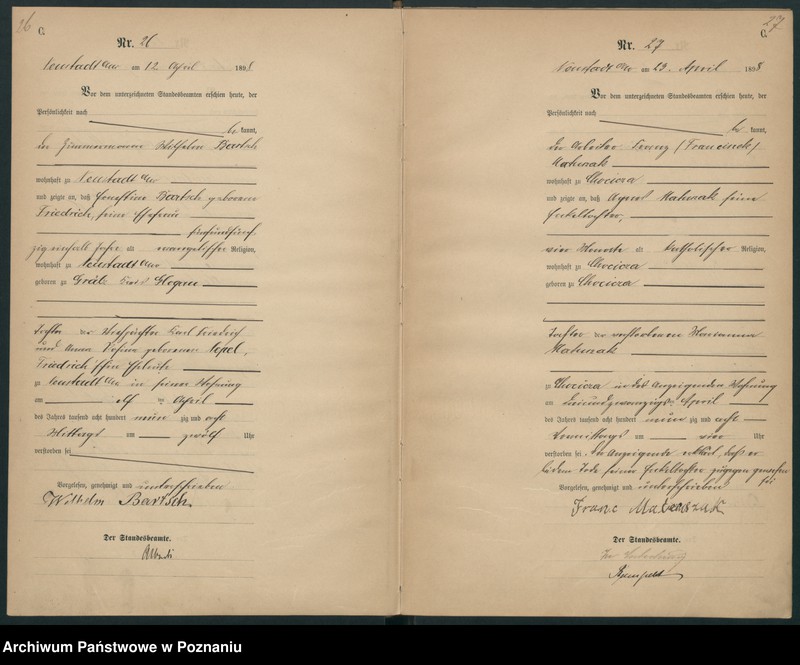 26
C.
Nr. 26
Neustadt am 12 April 1898
Vor dem unterzeichneten Standesbeamten erschien heute, der
Persönlichkeit nach
be kannt,
der Zimmermann Wilhelm Bartsch
wohnhaft zu Neustadt
und zeigte an, daß Bartsch geborene
Friedrich, seine Ehefrau
zig einhalb Jahre alt evangelischer Religion,
wohnhaft zu Neustadt
geboren zu Grätz Kreis Glogau
Tochter der Karl Friedrich
und Anna geborenen
Friedrich'schen Eheleute
zu Neustadt in seiner Wohnung
am elf April
des Jahres tausend acht hundert neun zig und acht
Mittags um zwölf Uhr
verstorben sei
Vorgelesen, genehmigt und unterschrieben
Wilhelm Bartsch
Der Standesbeamte.
27
C.
Nr. 27
Neustadt am 23. April 1898
Vor dem unterzeichneten Standesbeamten erschien heute, der
Persönlichkeit nach
be kannt,
der Arbeiter Franz (Franciszek)
wohnhaft zu Chocicza
und zeigte an, daß Agnes seine
Enkeltochter,
vier Monate alt katholischer Religion,
wohnhaft zu Chocicza
geboren zu Chocicza
Tochter der verstorbenen Marianna
zu Chocicza in des Anzeigenden Wohnung
am April
des Jahres tausend acht hundert neun zig und acht
Vormittags um vier Uhr
verstorben sei. Der Anzeigende erklärt, daß er
bei dem Tode seiner Enkeltochter zugegen gewesen
sei
Vorgelesen, genehmigt und unterschrieben
Franc
Der Standesbeamte.
In Vertretung
Archiwum Państwowe w Poznaniu